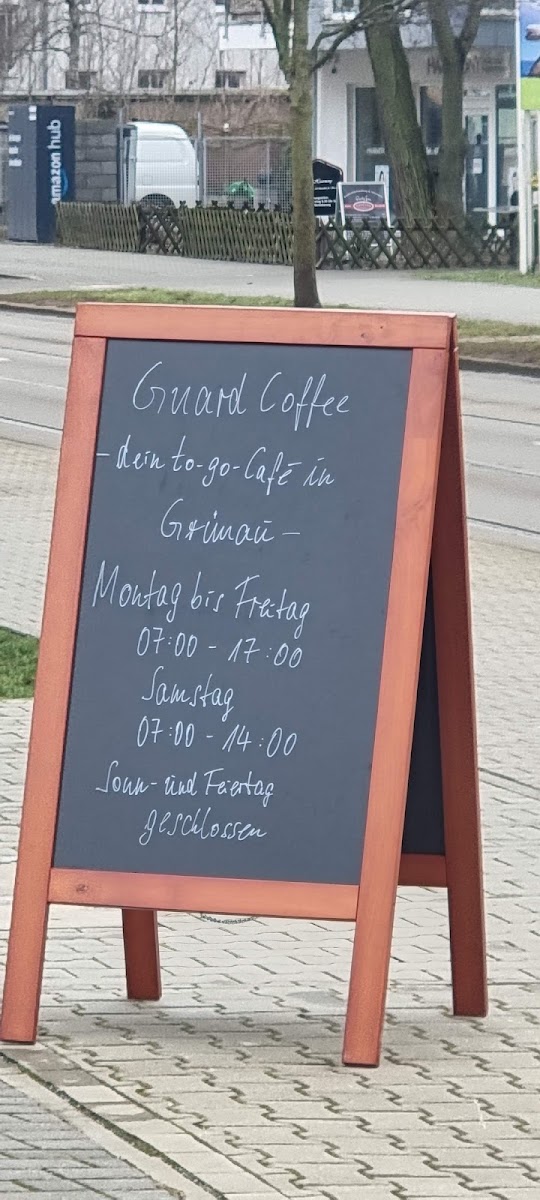 amazon hub
Guard Coffee
- dein to-go-Café in
Grünau -
Montag bis Freitag
07:00 - 17:00
Samstag
07:00 - 14:00
Sonn- und Feiertag
geschlossen